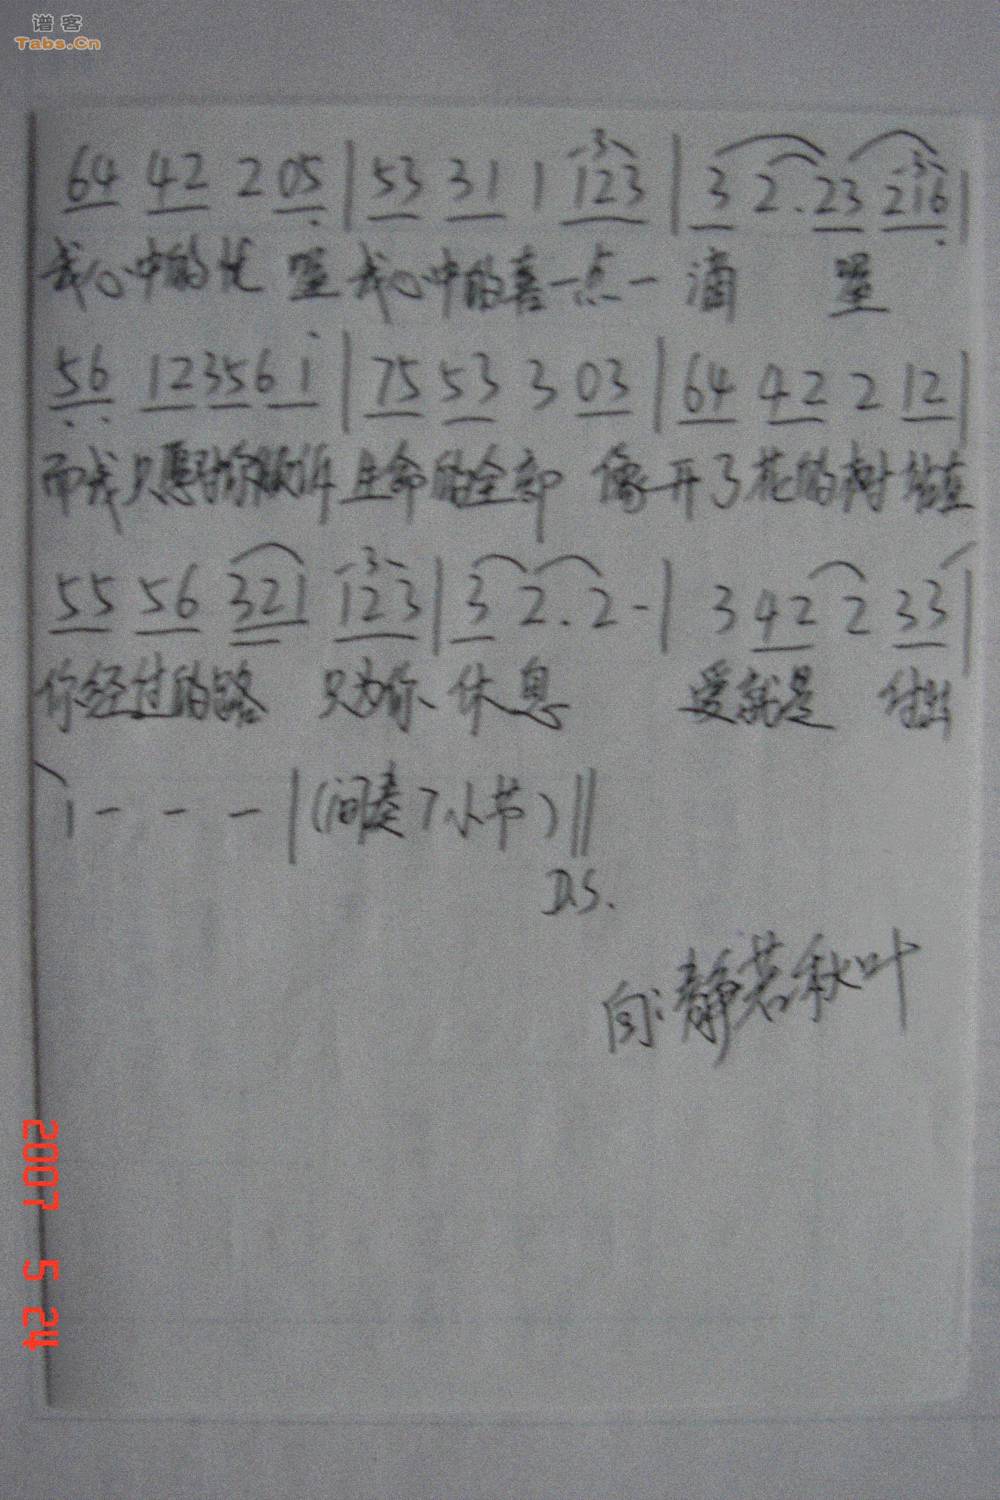 谱客
Tabs.Cn
64 42 2 05 | 53 31 1 123 | 3 2. 23 216 |
我心中的忧 喔 我心中的喜一点一 滴 喔
56 123561 | 75 53 3 03 | 64 42 2 12 |
而我只愿对你倾诉 生命的全部 像开了花的树 站在
55 56 321 123 | 3 2. 2 - | 3 42 2 33 |
你经过的路 只为你 休息 爱就是 付出
1 - - - | (间奏7小节) ||
D.S.
向:静若秋叶
2007 5 24